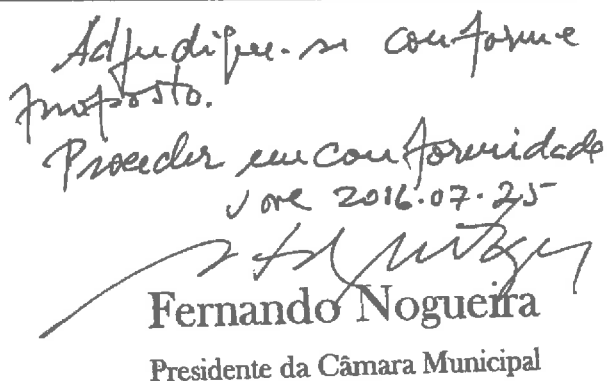 Adjudique-se conforme
proposto.
Proceder em conformidade
2016.07.25
Fernando Nogueira
Presidente da Câmara Municipal